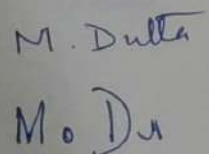 M. Dutta
M. Du